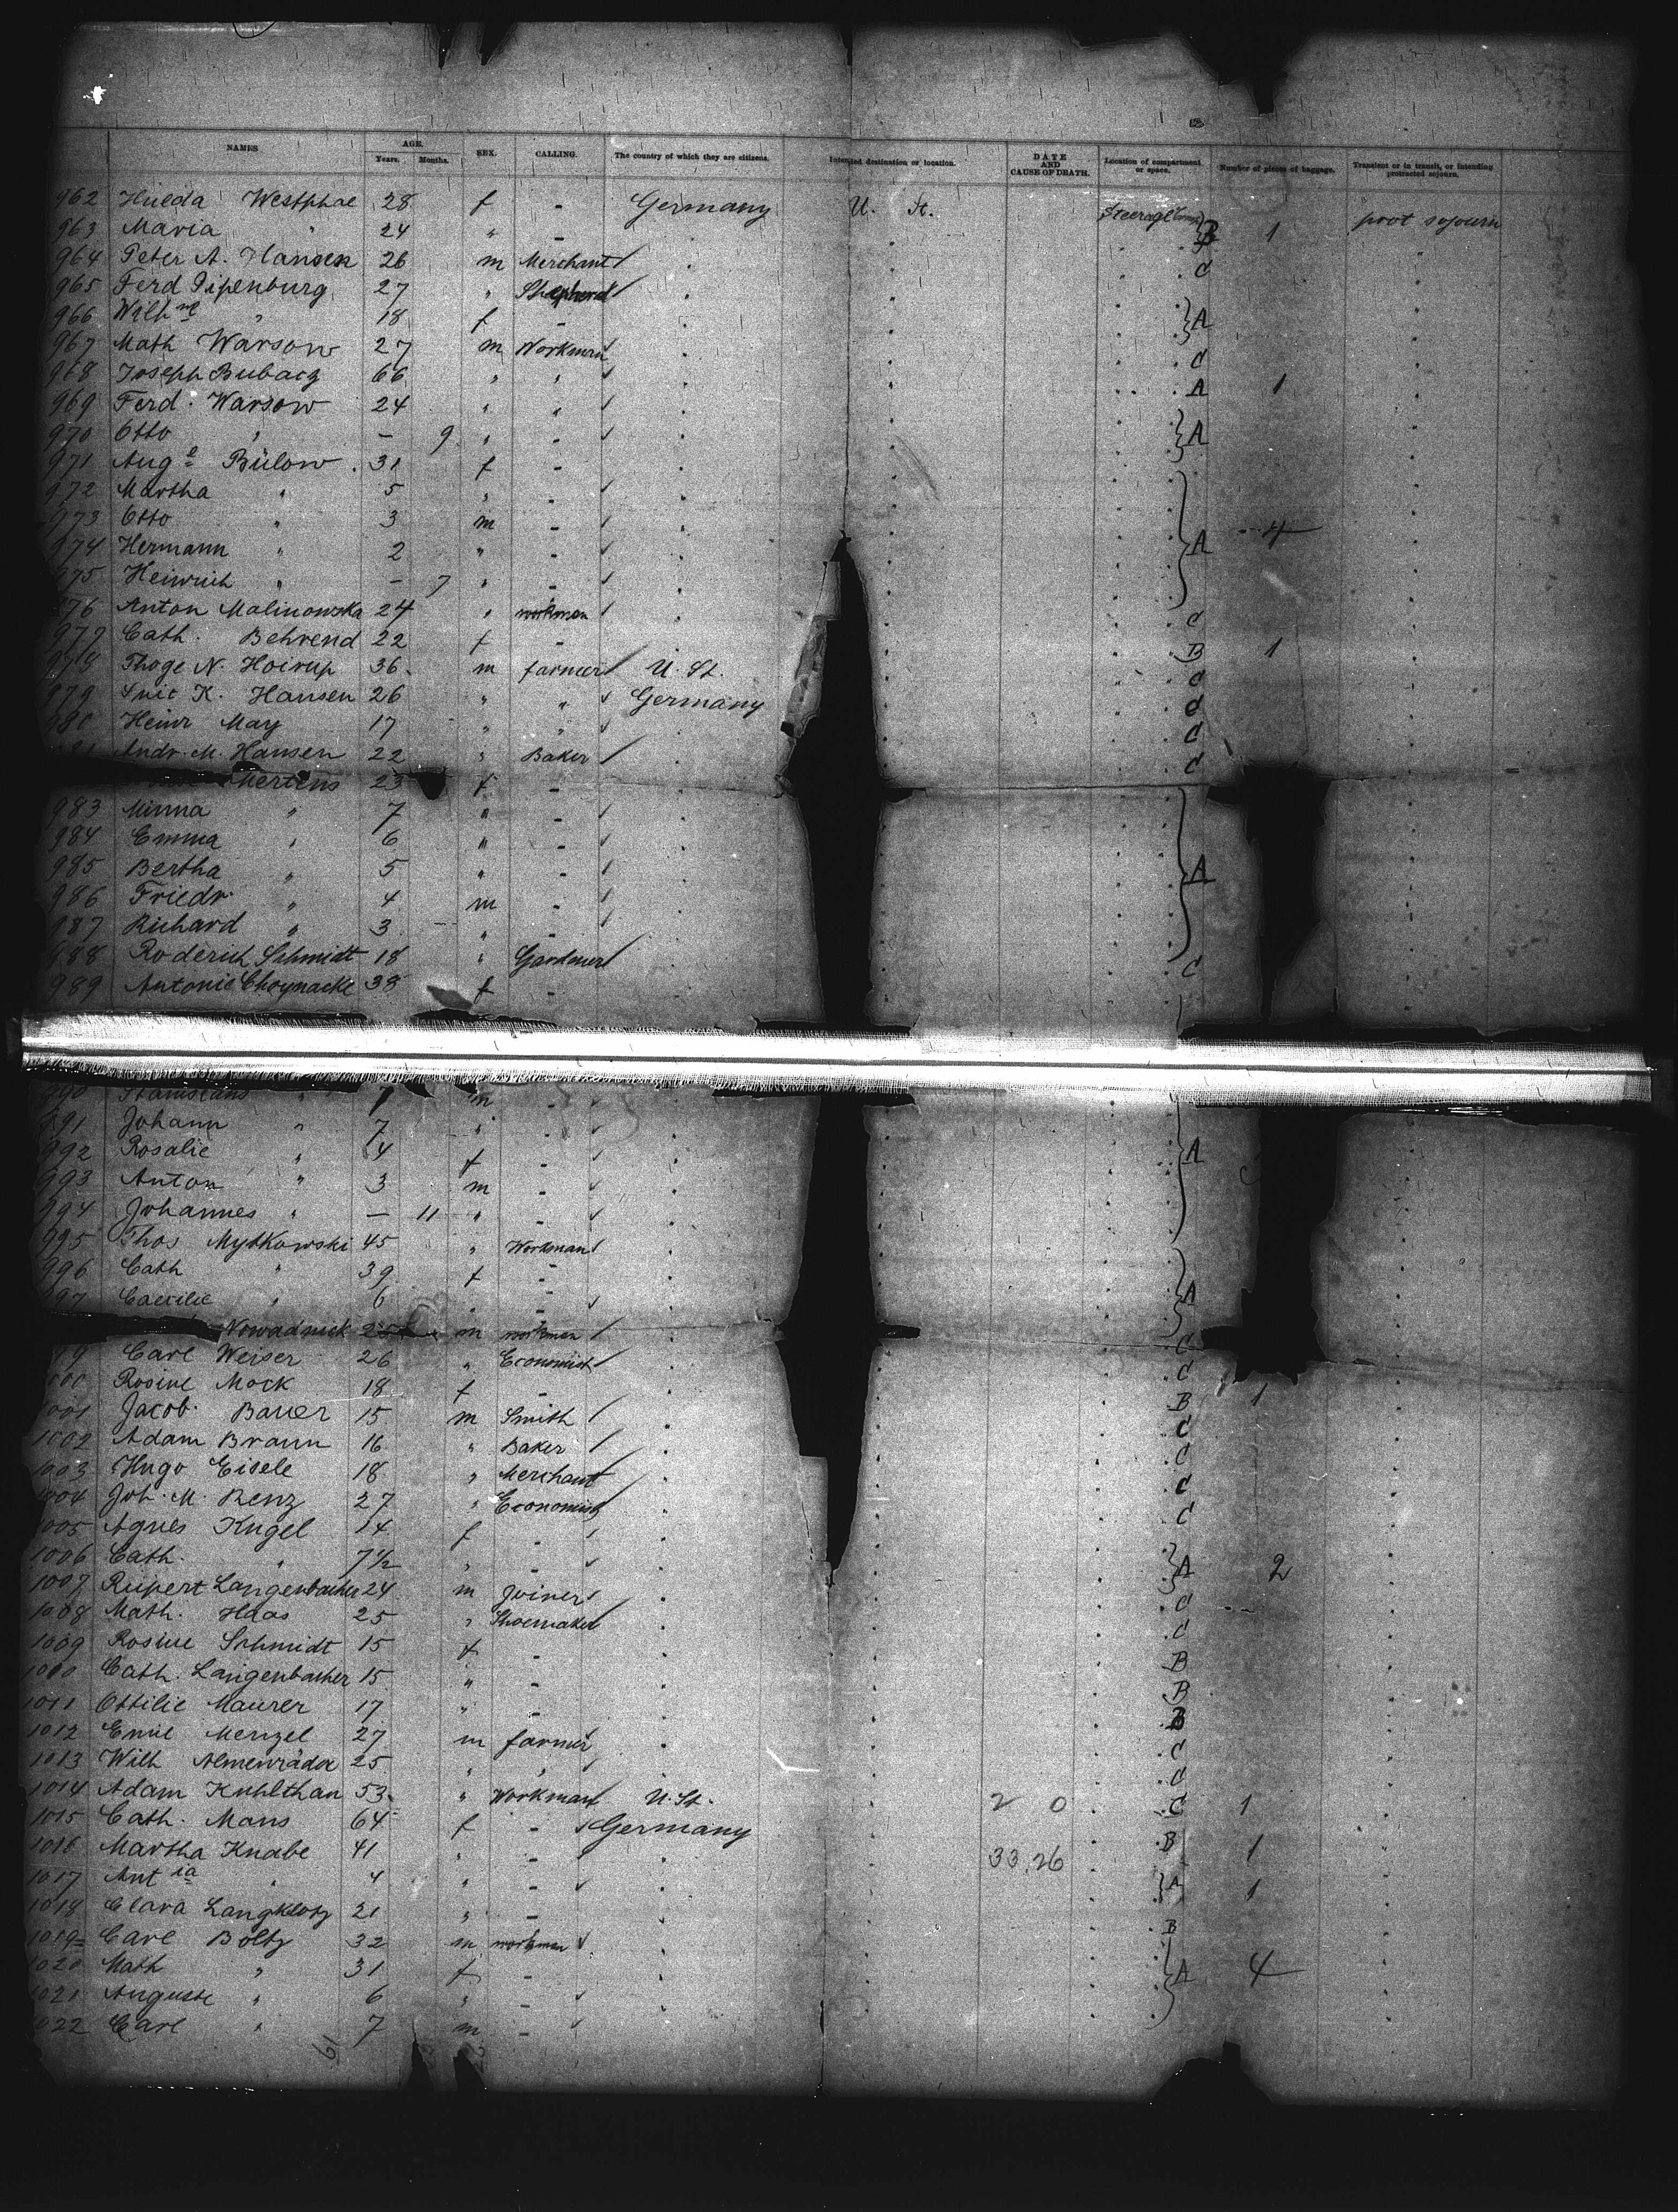 NAMES AGE. Years. Months. SEX. CALLING. The country of which they are citizens. Intended destination or location. DATE AND CAUSE OF DEATH. Location of compartment or space. Number of pieces of baggage. Transient or in transit, or intending protracted sojourn.
962 Hulda Westphal 28 f - Germany U. St. Steerage B 1 prot sojourn
963 Maria " 24 " -
964 Peter A. Hansen 26 m Merchant C
965 Ferd Pipenburg 27 " Shepherd A
966 Wilh ne " 18 f -
967 Math Warsow 27 m Workman C
968 Joseph Bubacz 66 " " A 1
969 Ferd. Warsow 24 " " A
970 Otto " - 9 " -
971 Aug e Bülow 31 f - A 4
972 Martha " 5 " -
973 Otto " 3 m -
974 Hermann " 2 " -
975 Heinrich " - 7 " -
976 Anton Malinowska 24 " workman C
977 Cath. Behrend 22 f - B 1
978 Thoge N. Hoirup 36 m farmer U. St. C
979 K. Hansen 26 " " Germany C
980 Heinr May 17 " " C
981 Andr. M. Hansen 22 " Baker C
Mertens 23 f - A
983 Minna " 7 " -
984 Emma " 6 " -
985 Bertha " 5 " -
986 Friedr. " 4 m -
987 Richard " 3 " -
988 Roderich Schmidt 18 " Gardener C
989 Antonie Choynacke 38 f -
990 Stanislaus " m - A
991 Johann " 7 " -
992 Rosalie " 4 f -
993 Anton " 3 m -
994 Johannes " - 11 " -
995 Thos Mytkowski 45 " Workman A
996 Cath " 39 f -
997 Caecilie " 6 " -
Nowadnick 25 m workman C
99 Carl Weiser 26 " Economist C
1000 Rosine Mock 18 f - B 1
1001 Jacob Bauer 15 m Smith C
1002 Adam Braun 16 " Baker C
1003 Hugo Eisele 18 " Merchant C
1004 Joh. M. Renz 27 " Economist C
1005 Agnes Kugel 14 f - A 2
1006 Cath. " 7½ " -
1007 Rupert Langenbacher 24 m Joiner C
1008 Math. Haas 25 " Shoemaker C
1009 Rosine Schmidt 15 f - B
1010 Cath. Langenbacher 15 " - B
1011 Ottilie Maurer 17 " - B
1012 Emil Menzel 27 m farmer C
1013 Wilh Almenräder 25 " " C
1014 Adam Kuhlthan 53 " Workman U. St. 2 0 C 1
1015 Cath. Mans 64 f - Germany B 1
1016 Martha Knabe 41 " - 33.26 A 1
1017 Ant ia " 4 " -
1018 Clara Langklotz 21 " - B
1019 Carl Boltz 32 m workman A 4
1020 Math " 31 f -
1021 Auguste " 6 " -
1022 Carl " 7 m -
61